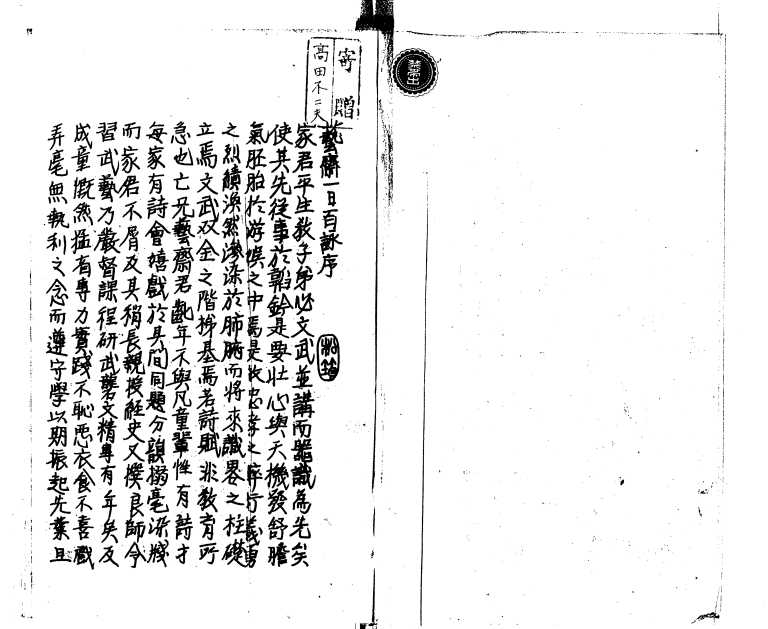 寄贈
高田不二夫
藝齋一日百詠序
家君平生教子弟必文武並講而器識為先矣
使其先從事於韜鈐是要壮心與天機發舒膽
氣胚胎於游娯之中焉是故忠孝之序行義勇
之烈績渙然滲染於肺腑而将來識畧之柱礎
立焉文武双全之階梯基焉若詩賦非教育所
急也亡兄藝齋君齠年不與凡童輩惟有詩才
每家有詩會嬉戲於其間同題分韻搦毫染牋
而家君不屑及其稍長親授経史又撲良師令
習武藝乃嚴督課程研武礱文精專有年矣及
成童慨然猛有專力實踐不恥悪衣食不喜戲
弄毫無執利之念而遵守學以期振起先業且